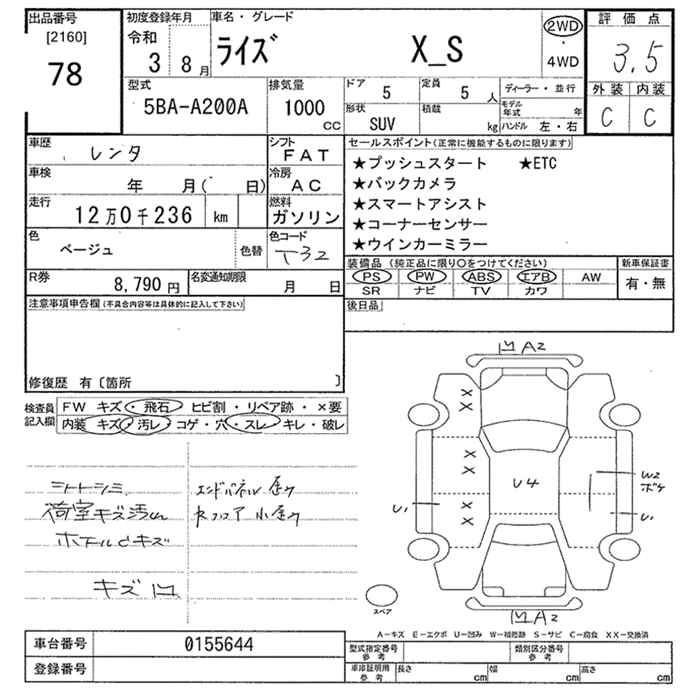 出品番号
[2160]
78
初度登録年月
令和
3 8月
車名・グレード
ライズ X_S
2WD
・
4WD
評価点
3.5
外装 内装
C C
型式
5BA-A200A
排気量
1000
CC
ドア 5
定員 5 人
形状
SUV
積載
kg
ディーラー・並行
モデル年式 年
ハンドル 左・右
車歴 レンタ
シフト
FAT
車検 年 月( 日)
冷房
AC
走行 12万0千236 km
燃料
ガソリン
色 ベージュ 色替
色コード
T32
R券 8,790円
名変通知期限
月 日
セールスポイント(正常に機能するものに限ります)
★プッシュスタート ★ETC
★バックカメラ
★スマートアシスト
★コーナーセンサー
★ウインカーミラー
装備品(純正品に限り○をつけてください)
PS PW ABS エアB AW
SR ナビ TV カワ
新車保証書
有・無
後日品
注意事項申告欄(不具合内容等は具体的に記入して下さい)
修復歴 有〔箇所 〕
検査員記入欄
FW キズ・飛石・ヒビ割・リペア跡・×要
内装 キズ・汚レ・コゲ・穴・スレ・キレ・破レ
シートシミ
荷室キズ汚れ
キズ凹
エンドパネル歪
A2
U4
U1
W2
ボケ
U1
A2
スペア
A-キズ E-エクボ U-凹み W-補修跡 S-サビ C-腐食 XX-交換済
車台番号 0155644
登録番号
型式指定番号
参考
類別区分番号
参考
車庫証明用
参考
長さ cm
幅 cm
高さ cm